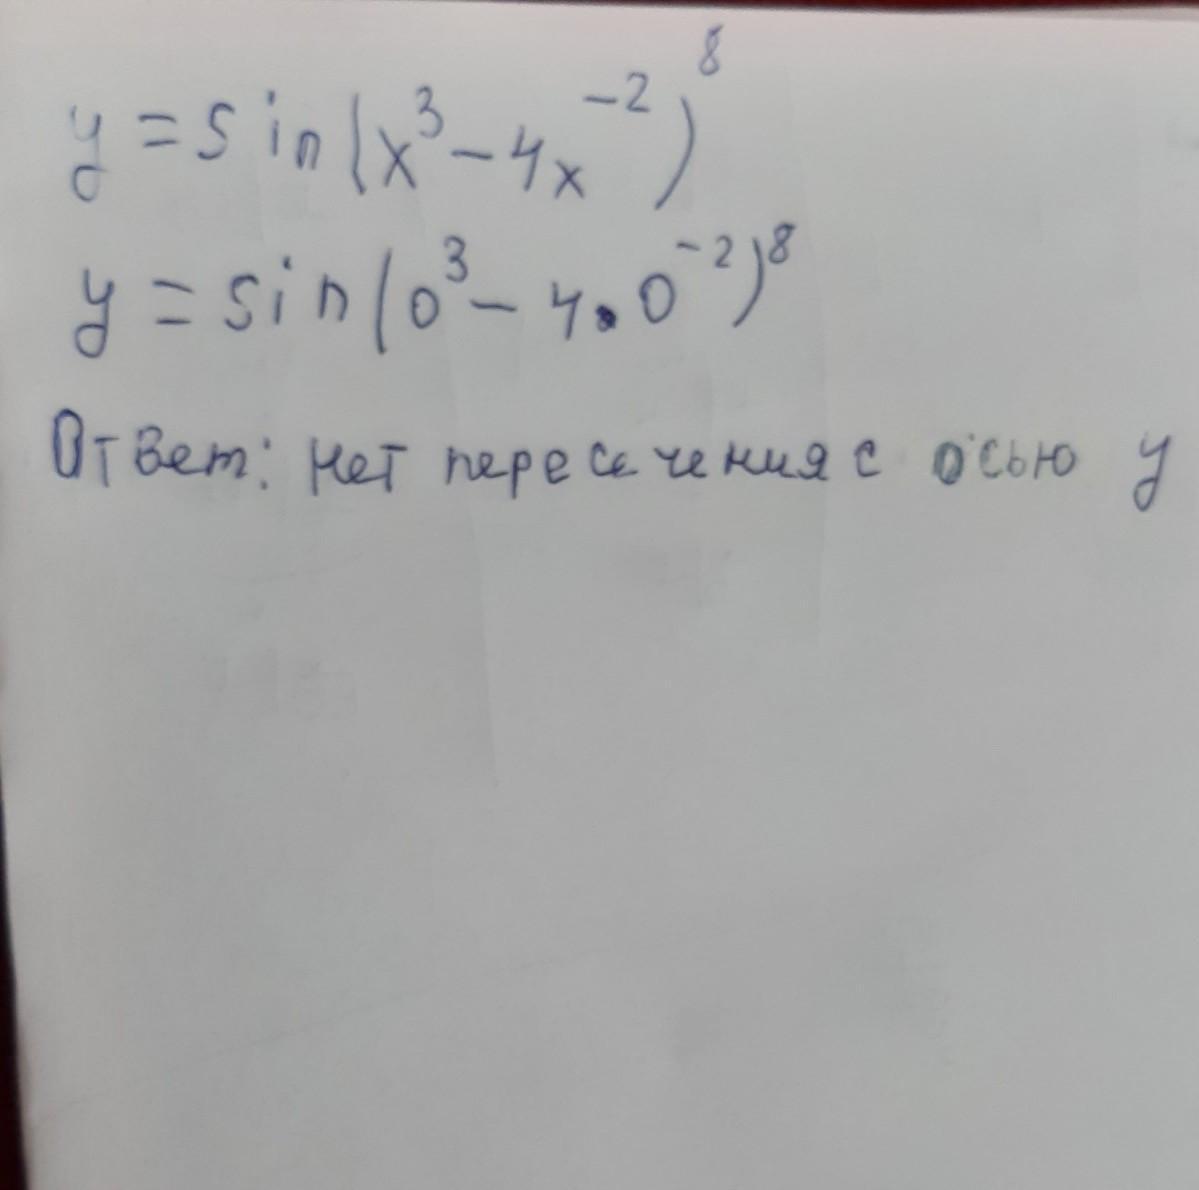 y = sin(x³ - 4x⁻²)⁸
y = sin(0³ - 4·0⁻²)⁸
Ответ: нет пересечения с осью y